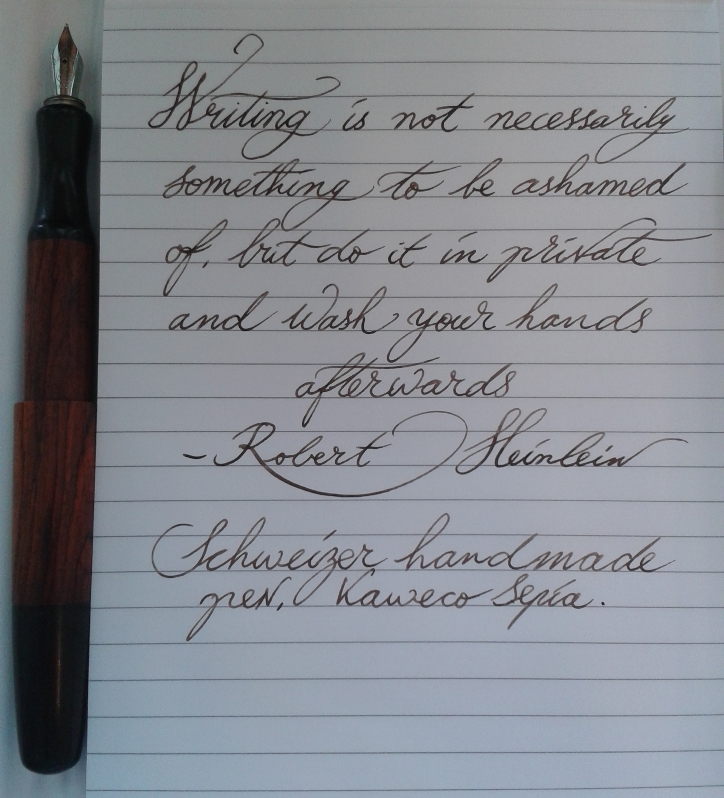 Writing is not necessarily
something to be ashamed
of, but do it in private
and wash your hands
afterwards
- Robert Heinlein
Schweizer handmade
pen, Kaweco Sepia.